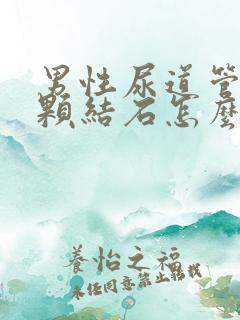 男性尿道管
顆結石怎麼
養怡之福
未经同意禁止转载